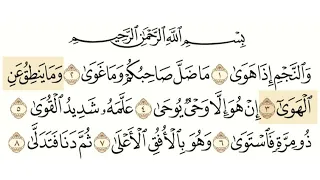 بِسْمِ اللَّهِ الرَّحْمَٰنِ الرَّحِيمِ
وَالنَّجْمِ إِذَا هَوَىٰ ١ مَا ضَلَّ صَاحِبُكُمْ وَمَا غَوَىٰ ٢ وَمَا يَنطِقُ عَنِ
الْهَوَىٰ ٣ إِنْ هُوَ إِلَّا وَحْيٌ يُوحَىٰ ٤ عَلَّمَهُ شَدِيدُ الْقُوَىٰ ٥
ذُو مِرَّةٍ فَاسْتَوَىٰ ٦ وَهُوَ بِالْأُفُقِ الْأَعْلَىٰ ٧ ثُمَّ دَنَا فَتَدَلَّىٰ ٨